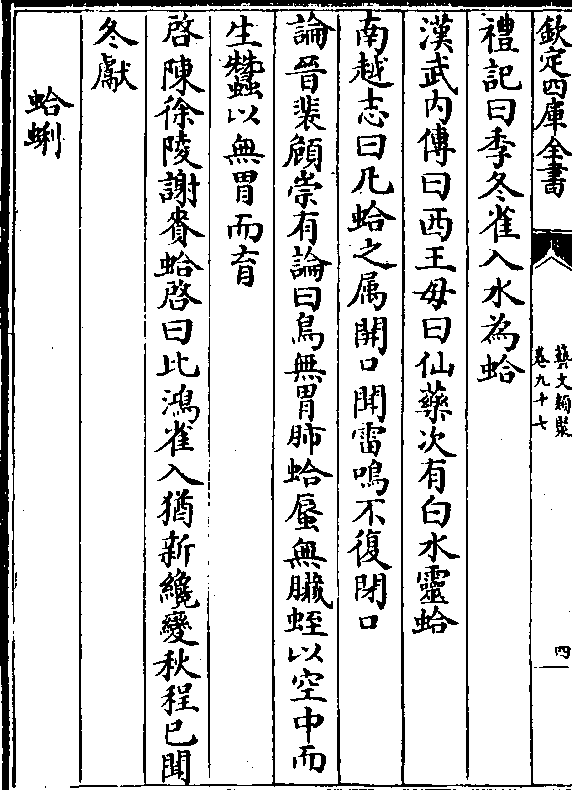 欽定四庫全書
藝文類聚
卷九十七
四
禮記曰季冬雀入水為蛤
漢武内傳曰西王母曰仙藥次有白水靈蛤
南越志曰凡蛤之属開口聞雷鳴不復閉口
論晉裴頠崇有論曰鳥無胃肺蛤蜃無臟蛭以空中而
生蠶以無胃而育
啓陳徐陵謝賚蛤啓曰比鴻雀入猶新纔變秋程已聞
冬獻
蛤蜊